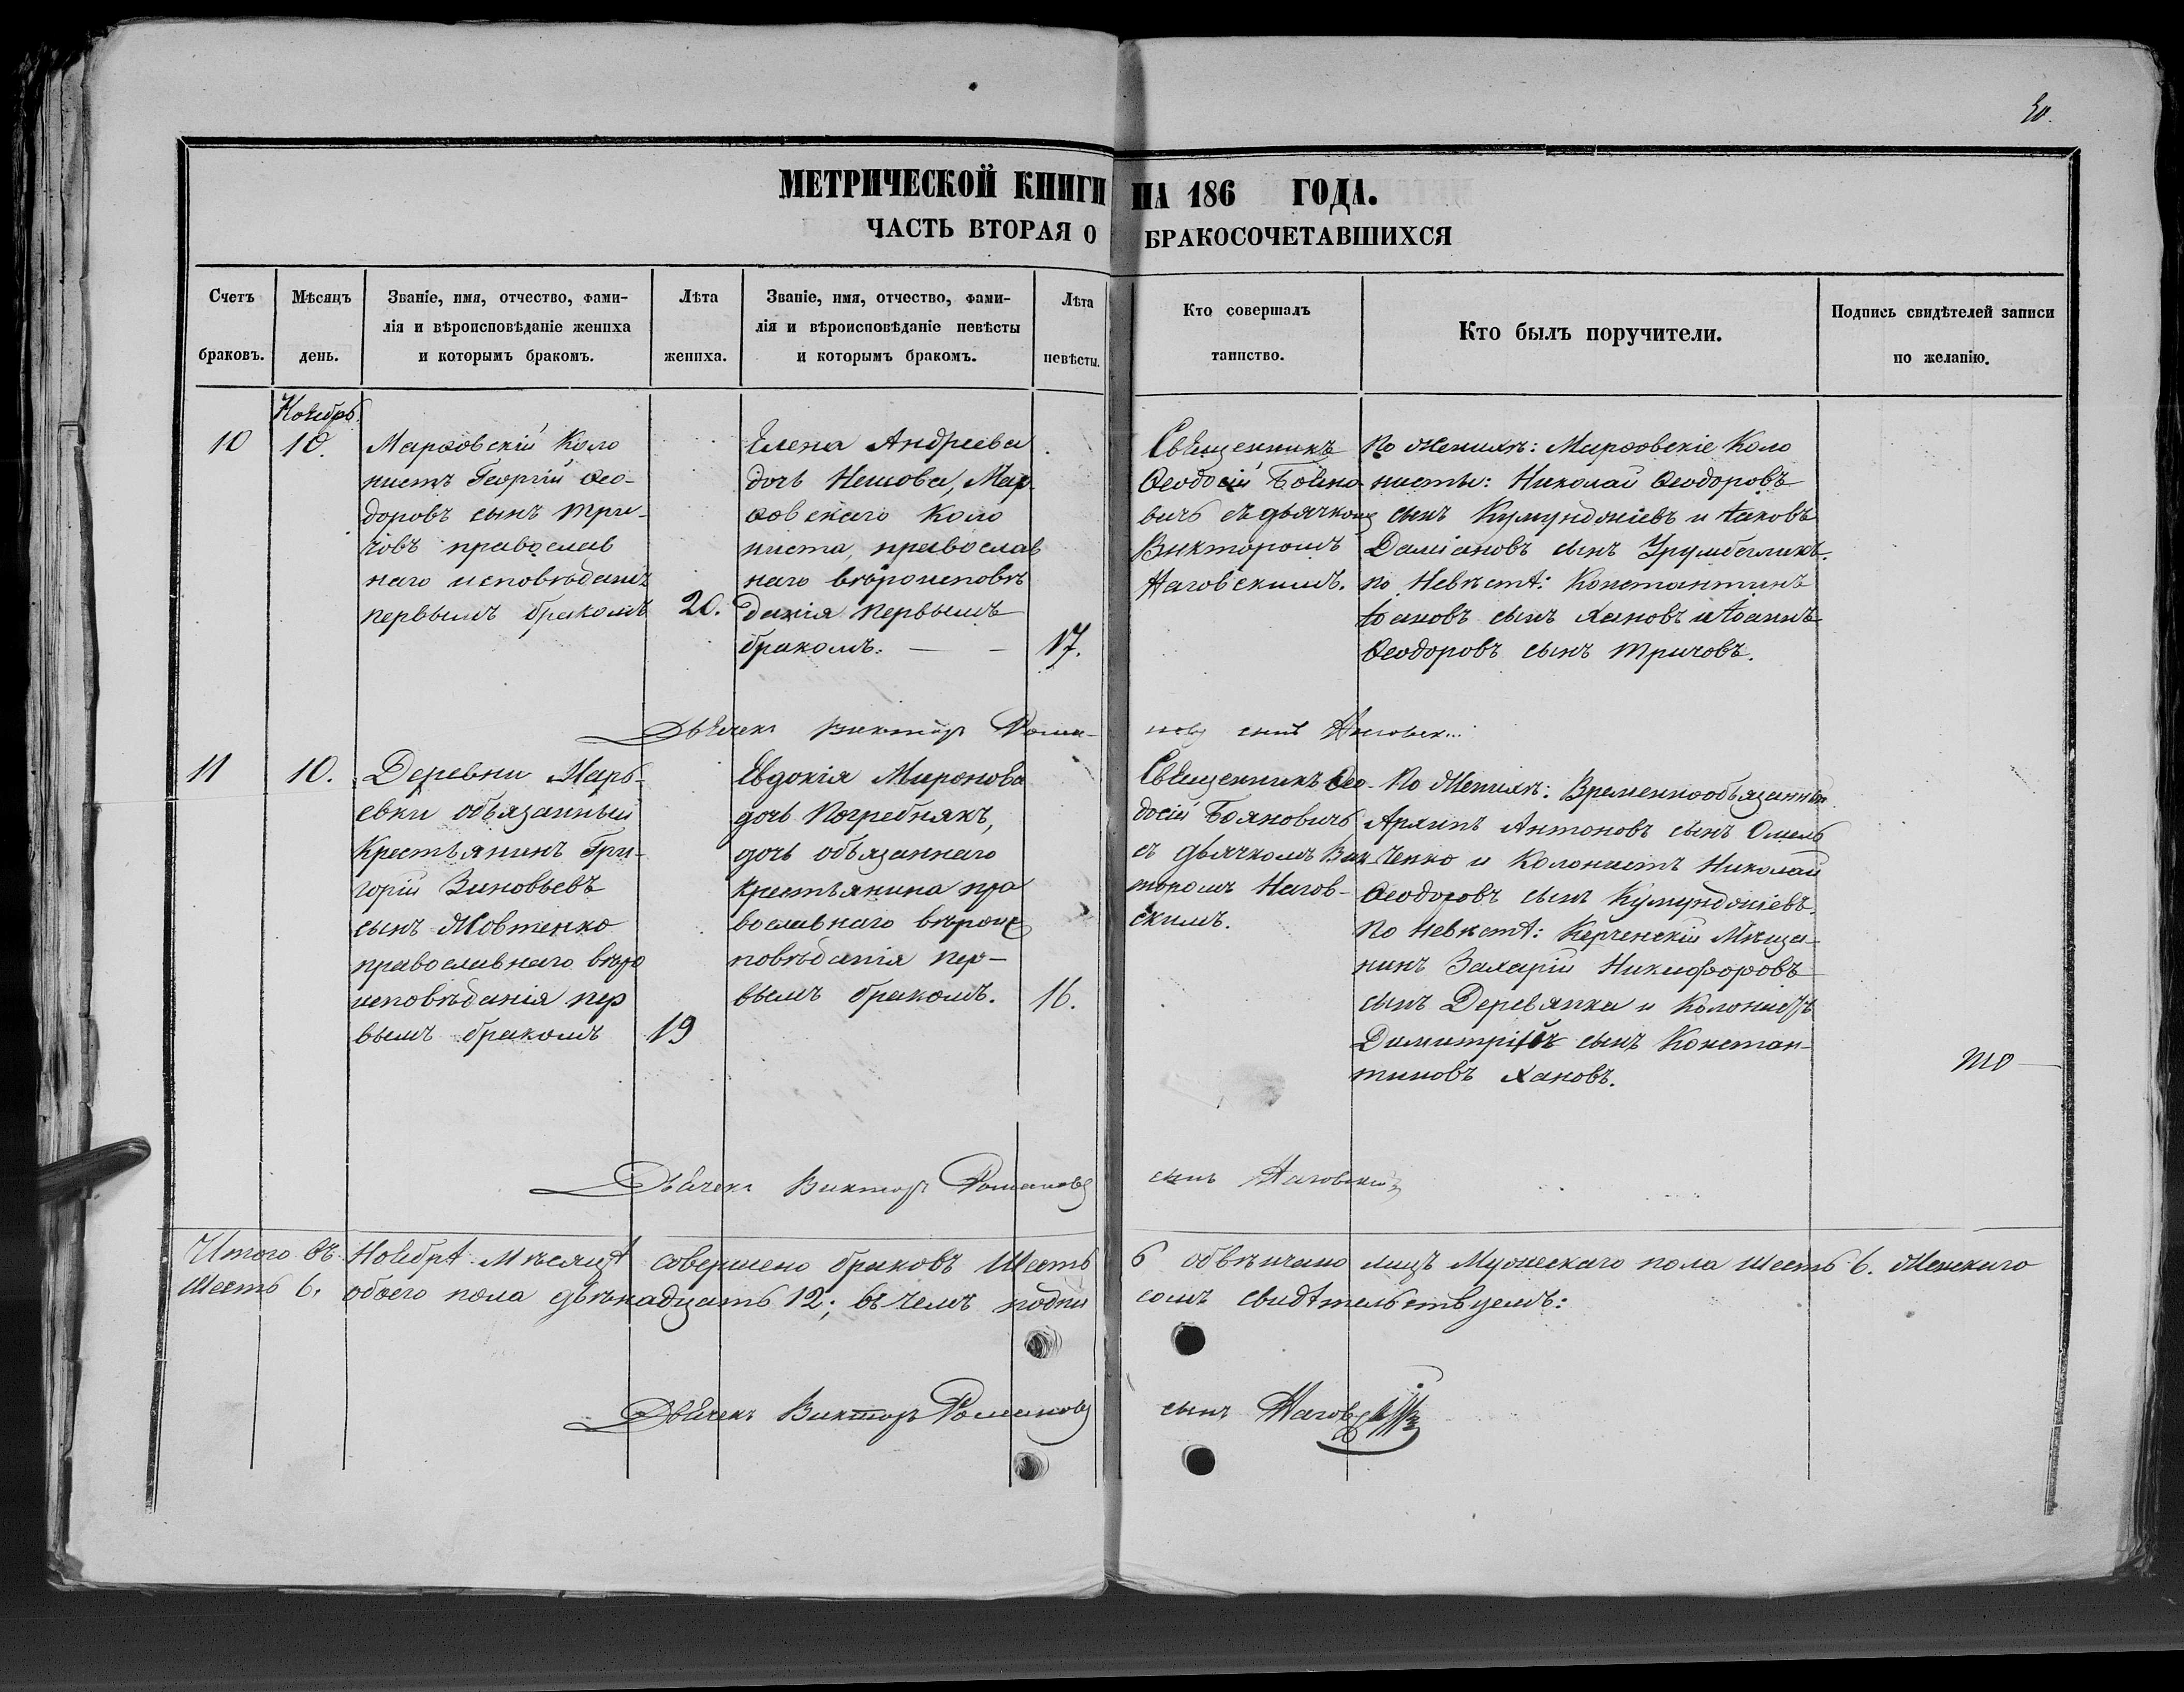 30.
МЕТРИЧЕСКОЙ КНИГИ НА 186 ГОДА.
ЧАСТЬ ВТОРАЯ О БРАКОСОЧЕТАВШИХСЯ
Счетъ браковъ.
Мѣсяцъ день.
Званіе, имя, отчество, фами-
лія и вѣроисповѣданіе жениха
и которымъ бракомъ.
Лѣта жениха.
Званіе, имя, отчество, фами-
лія и вѣроисповѣданіе невѣсты
и которымъ бракомъ.
Лѣта невѣсты.
Кто совершалъ
таинство.
Кто былъ поручители.
Подпись свидѣтелей записи
по желанію.
Ноябрь
10
10.
Марѳовскій Коло
нистъ Георгій Ѳео-
доровъ сынъ Три-
човъ православ
наго исповѣданія
первымъ бракомъ
20.
Елена Андреева
дочь Нешова, Мар-
ѳовскаго Коло
ниста, православ
наго вѣроисповѣ
данія первымъ
бракомъ.
17.
Священникъ
Ѳеодосій Бояно
вичъ съ дьячкомъ
Викторомъ
Наговскимъ.
По Женихѣ: Марѳовскіе Коло
нисты: Николай Ѳеодоровъ
сынъ Кумунджіевъ и Іаковъ
Даміановъ сынъ
по Невѣстѣ: Константинъ
Іоановъ сынъ Хановъ и Іоаннъ
Ѳеодоровъ сынъ Тричовъ.
Дьячекъ Викторъ Рома-
новъ сынъ Наговск...
11
10.
Деревни Марь-
евки обязанный
Крестьянинъ Гри-
горій Зиновьевъ
сынъ Жовтенко
православнаго вѣро
исповѣданія пер
вымъ бракомъ
19
Евдокія Миронова
дочь Погребнякъ,
дочь обязаннаго
Крестьянина пра
вославнаго вѣроис
повѣданія пер-
вымъ бракомъ.
16.
Священникъ Ѳео-
досій Бояновичъ
съ дьячкомъ Вик-
торомъ Нагов-
скимъ.
По Женихѣ: Временнообязанный
Архипъ Антоновъ сынъ Омель
Ченко и Колонистъ Николай
Ѳеодоровъ сынъ Кумунджіевъ.
По Невѣстѣ: Керченскій Мѣща-
нинъ Захарій Никифоровъ
сынъ Деревянка и Колонистъ
Димитрій сынъ Констан-
тиновъ Хановъ.
то
Дьячекъ Викторъ Романовъ
сынъ Наговскій
Итого въ Ноябрѣ Мѣсяцѣ совершено браковъ Шесть 6 обвѣнчано лицъ Мужескаго пола шесть 6. Женскаго
Шесть 6. обоего пола двѣнадцать 12; въ чемъ подпи
сомъ свидѣтельствуемъ:
Дьячекъ Викторъ Романовъ
сынъ Наговскій